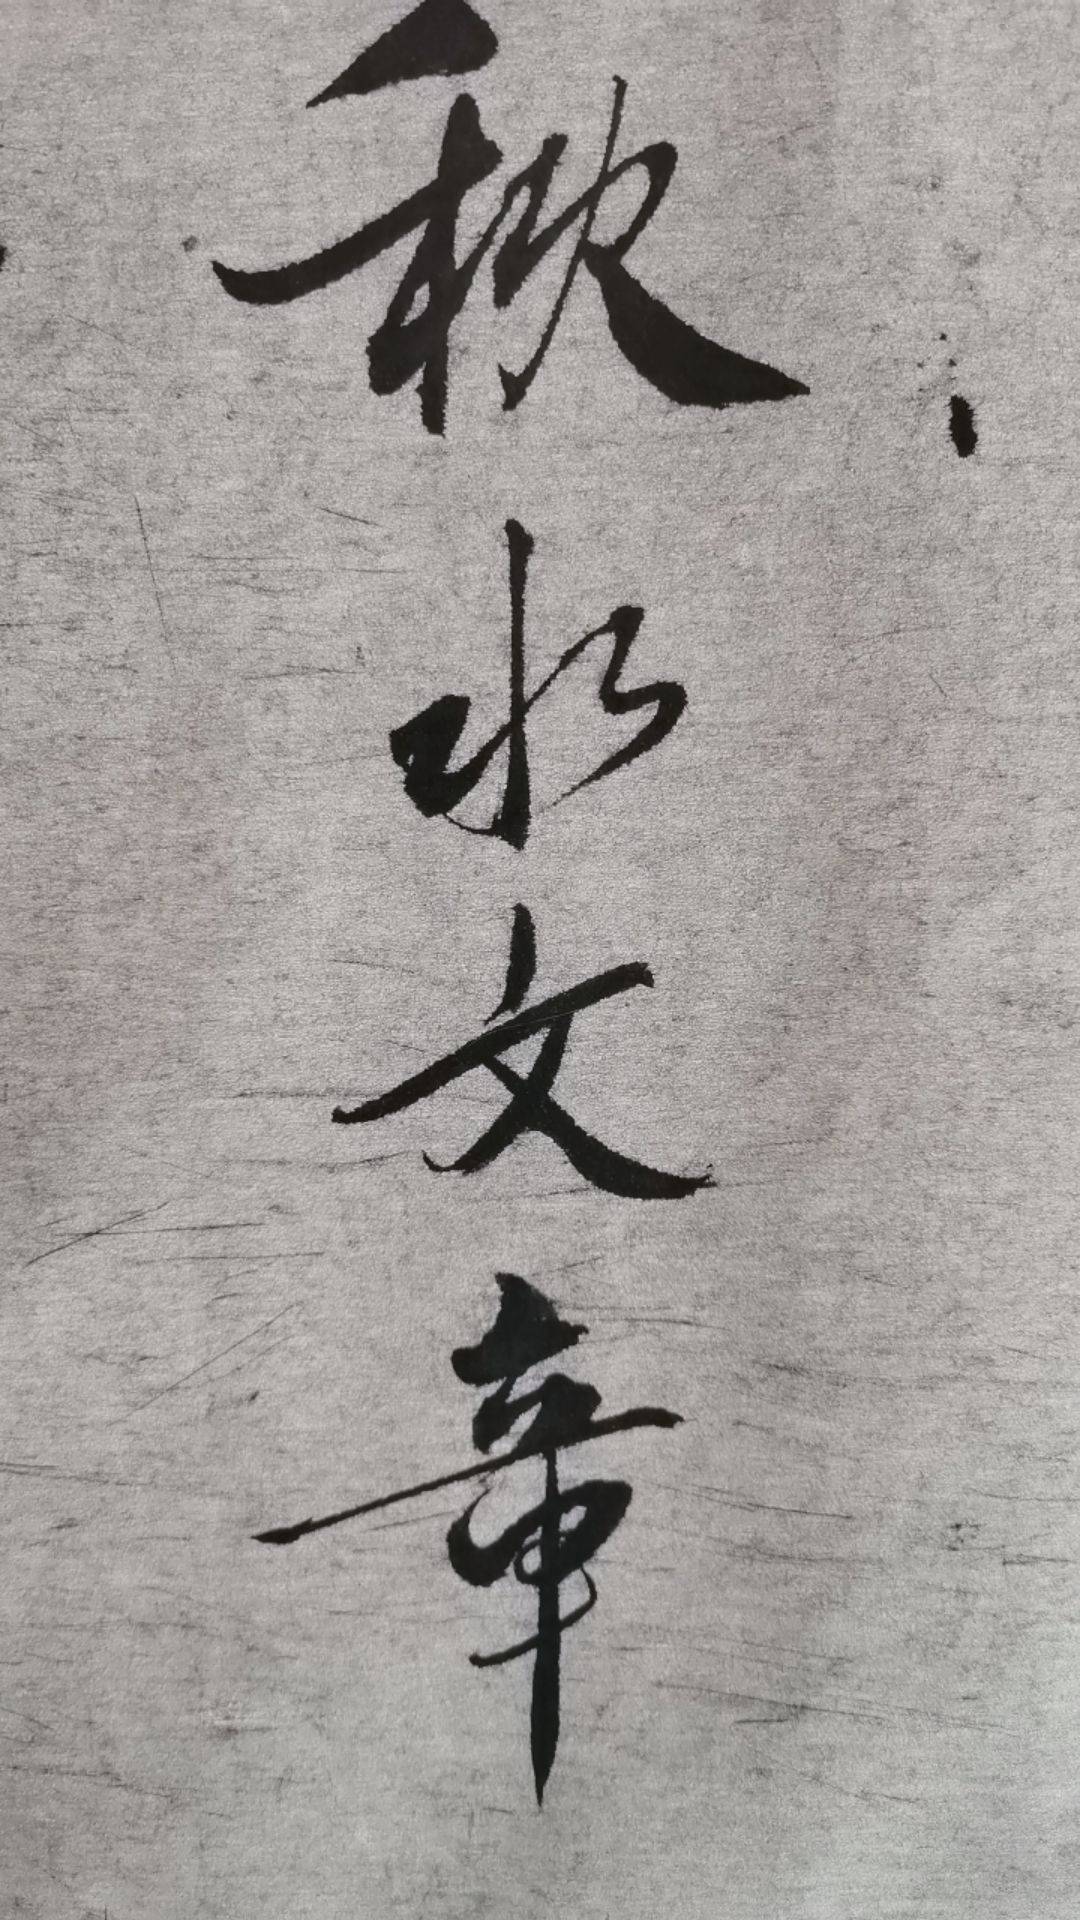 秋水文章